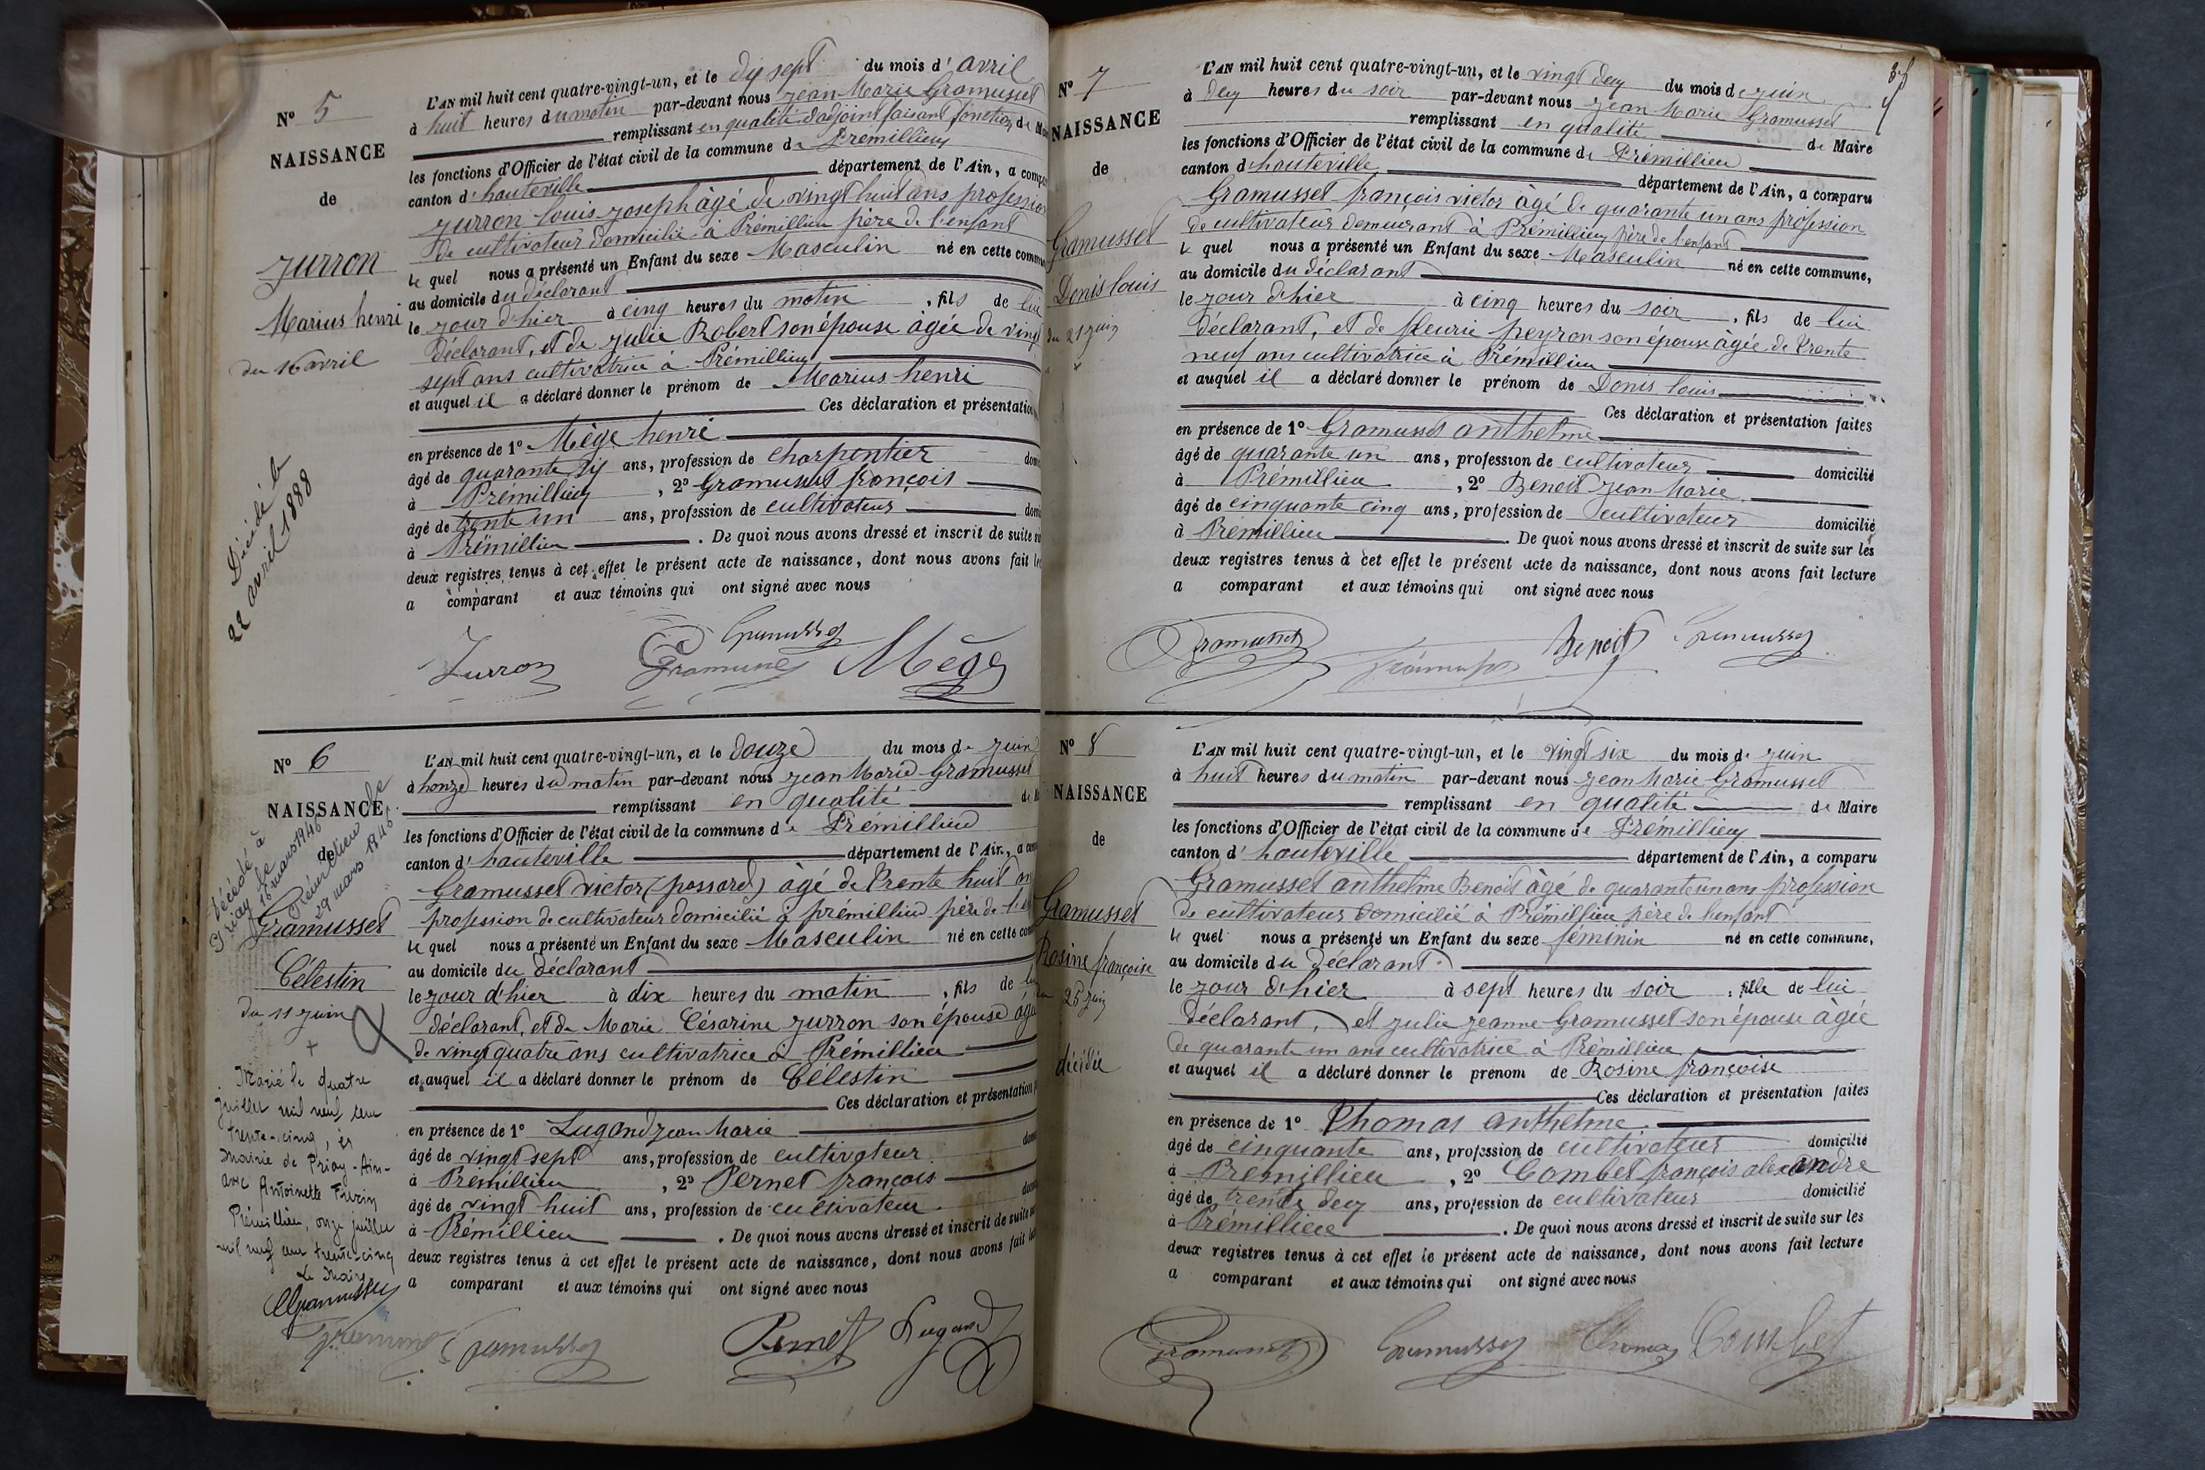 N° 5
NAISSANCE
de
Jurron
Marius henri
du 16 avril
Décédé le
22 avril 1888
L'AN mil huit cent quatre-vingt-un, et le dix sept du mois d' avril
à huit heures du matin par-devant nous Jean Marie Gramusset
remplissant en qualité d'adjoint faisant fonction de
les fonctions d'Officier de l'état civil de la commune de Prémillieu
canton d' hauteville département de l'Ain, a
Jurron louis joseph âgé de vingt huit ans profession
de cultivateur domicilié à Prémillieu père de l'enfant
le quel nous a présenté un Enfant du sexe Masculin né en cette
au domicile du déclarant
le jour d'hier à cinq heures du matin, fils de lui
déclarant, et de julie Robert son épouse âgée de vingt
sept ans cultivatrice à Prémillieu
et auquel il a déclaré donner le prénom de Marius henri
Ces déclaration et présentation
en présence de 1° Mège henri
âgé de quarante dix ans, profession de charpentier
à Prémillieu, 2° Gramusset françois
âgé de trente un ans, profession de cultivateur
à Prémillieu. De quoi nous avons dressé et inscrit de suite
deux registres tenus à cet effet le présent acte de naissance, dont nous avons fait
a comparant et aux témoins qui ont signé avec nous
Gramusset
Jurron Gramusset Mège
N° 6
NAISSANCE
de
Décédé à
Priay le
18 mars 1946
Prémillieu le
29 mars 1946
Gramusset
Célestin
du 11 juin
Marié le quatre
juillet mil neuf cent
trente-cinq, en
mairie de Priay -Ain-
avec Antoinette
Prémillieu, onze juillet
mil neuf cent trente-cinq
Le Maire
Gramusset
L'AN mil huit cent quatre-vingt-un, et le douze du mois de juin
à honze heures du matin par-devant nous jean Marie Gramusset
remplissant en qualité
les fonctions d'Officier de l'état civil de la commune de Prémillieu
canton d' hauteville département de l'Ain, a
Gramusset victor (possard) âgé de trente huit
profession de cultivateur domicilié à prémillieu père de
le quel nous a présenté un Enfant du sexe Masculin né en cette
au domicile du déclarant
le jour d'hier à dix heures du matin, fils de lui
déclarant, et de Marie Césarine jurron son épouse âgée
de vingt quatre ans cultivatrice à Prémillieu
et auquel il a déclaré donner le prénom de Célestin
Ces déclaration et présentation
en présence de 1° Lugand jean Marie
âgé de vingt sept ans, profession de cultivateur
à Prémillieu, 2° Pernet françois
âgé de vingt huit ans, profession de cultivateur
à Prémillieu. De quoi nous avons dressé et inscrit de suite
deux registres tenus à cet effet le présent acte de naissance, dont nous avons fait
a comparant et aux témoins qui ont signé avec nous
Gramusset Gramusset Pernet Lugand
N° 7
NAISSANCE
de
Gramusset
Denis louis
du 21 juin
L'AN mil huit cent quatre-vingt-un, et le vingt deux du mois de juin
à deux heures du soir par-devant nous jean Marie Gramusset
remplissant en qualité de Maire
les fonctions d'Officier de l'état civil de la commune de Prémillieu
canton d' hauteville département de l'Ain, a comparu
Gramusset françois victor âgé de quarante un ans profession
de cultivateur demeurant à Prémillieu père de l'enfant
le quel nous a présenté un Enfant du sexe Masculin né en cette commune,
au domicile du déclarant
le jour d'hier à cinq heures du soir, fils de lui
déclarant, et de fleurie peyron son épouse âgée de trente
neuf ans cultivatrice à Prémillieu
et auquel il a déclaré donner le prénom de Denis louis
Ces déclaration et présentation faites
en présence de 1° Gramusset anthelme
âgé de quarante un ans, profession de cultivateur domicilié
à Prémillieu, 2° Benoit jean Marie
âgé de cinquante cinq ans, profession de cultivateur domicilié
à Prémillieu. De quoi nous avons dressé et inscrit de suite sur les
deux registres tenus à cet effet le présent acte de naissance, dont nous avons fait lecture
a comparant et aux témoins qui ont signé avec nous
Gramusset Gramusset Benoit Gramusset
N° 8
NAISSANCE
de
Gramusset
Rosine françoise
du 25 juin
décédée
L'AN mil huit cent quatre-vingt-un, et le vingt six du mois de juin
à huit heures du matin par-devant nous jean Marie Gramusset
remplissant en qualité de Maire
les fonctions d'Officier de l'état civil de la commune de Prémillieu
canton d' hauteville département de l'Ain, a comparu
Gramusset anthelme Benoit âgé de quarante un ans profession
de cultivateur domicilié à Prémillieu père de l'enfant
le quel nous a présenté un Enfant du sexe féminin né en cette commune,
au domicile du déclarant
le jour d'hier à sept heures du soir, fille de lui
déclarant, et julie jeanne Gramusset son épouse âgée
de quarante un ans cultivatrice à Prémillieu
et auquel il a déclaré donner le prénom de Rosine françoise
Ces déclaration et présentation faites
en présence de 1° Thomas anthelme
âgé de cinquante ans, profession de cultivateur domicilié
à Prémillieu, 2° Combet françois alexandre
âgé de trente deux ans, profession de cultivateur domicilié
à Prémillieu. De quoi nous avons dressé et inscrit de suite sur les
deux registres tenus à cet effet le présent acte de naissance, dont nous avons fait lecture
a comparant et aux témoins qui ont signé avec nous
Gramusset Gramusset Thomas Combet